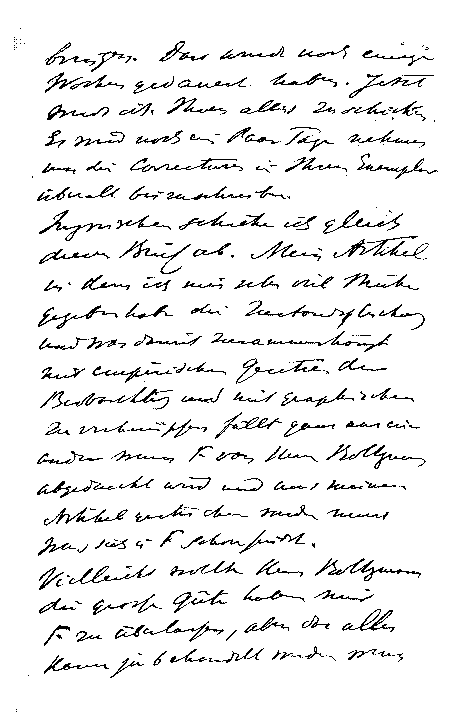 bringen. Das wird noch einige
Wochen gedauert haben. Jetzt
muss ich Ihnen alles zuschicken.
Es wird noch ein Paar Tage nehmen
um die Correcturen in Ihrem Exemplar
überall beizuschreiben.
Inzwischen schicke ich gleich
diesen Brief ab. Mein Artikel
in dem ich mir sehr viel Mühe
gegeben habe die Zustandsgleichung
und was damit zusammenhängt
mit empirischen
Beobachtung und mit graphischen
zu verknüpfen fällt ganz aus ein
ander wenn F von Herrn Boltzmann
abgedruckt wird und aus meinem
Artikel gestrichen werden muss
was sich in F schon findet.
Vielleicht wollte Herr Boltzmann
die grosse Güte haben mir
F zu überlassen, aber das alles
kann ja behandelt werden wenn